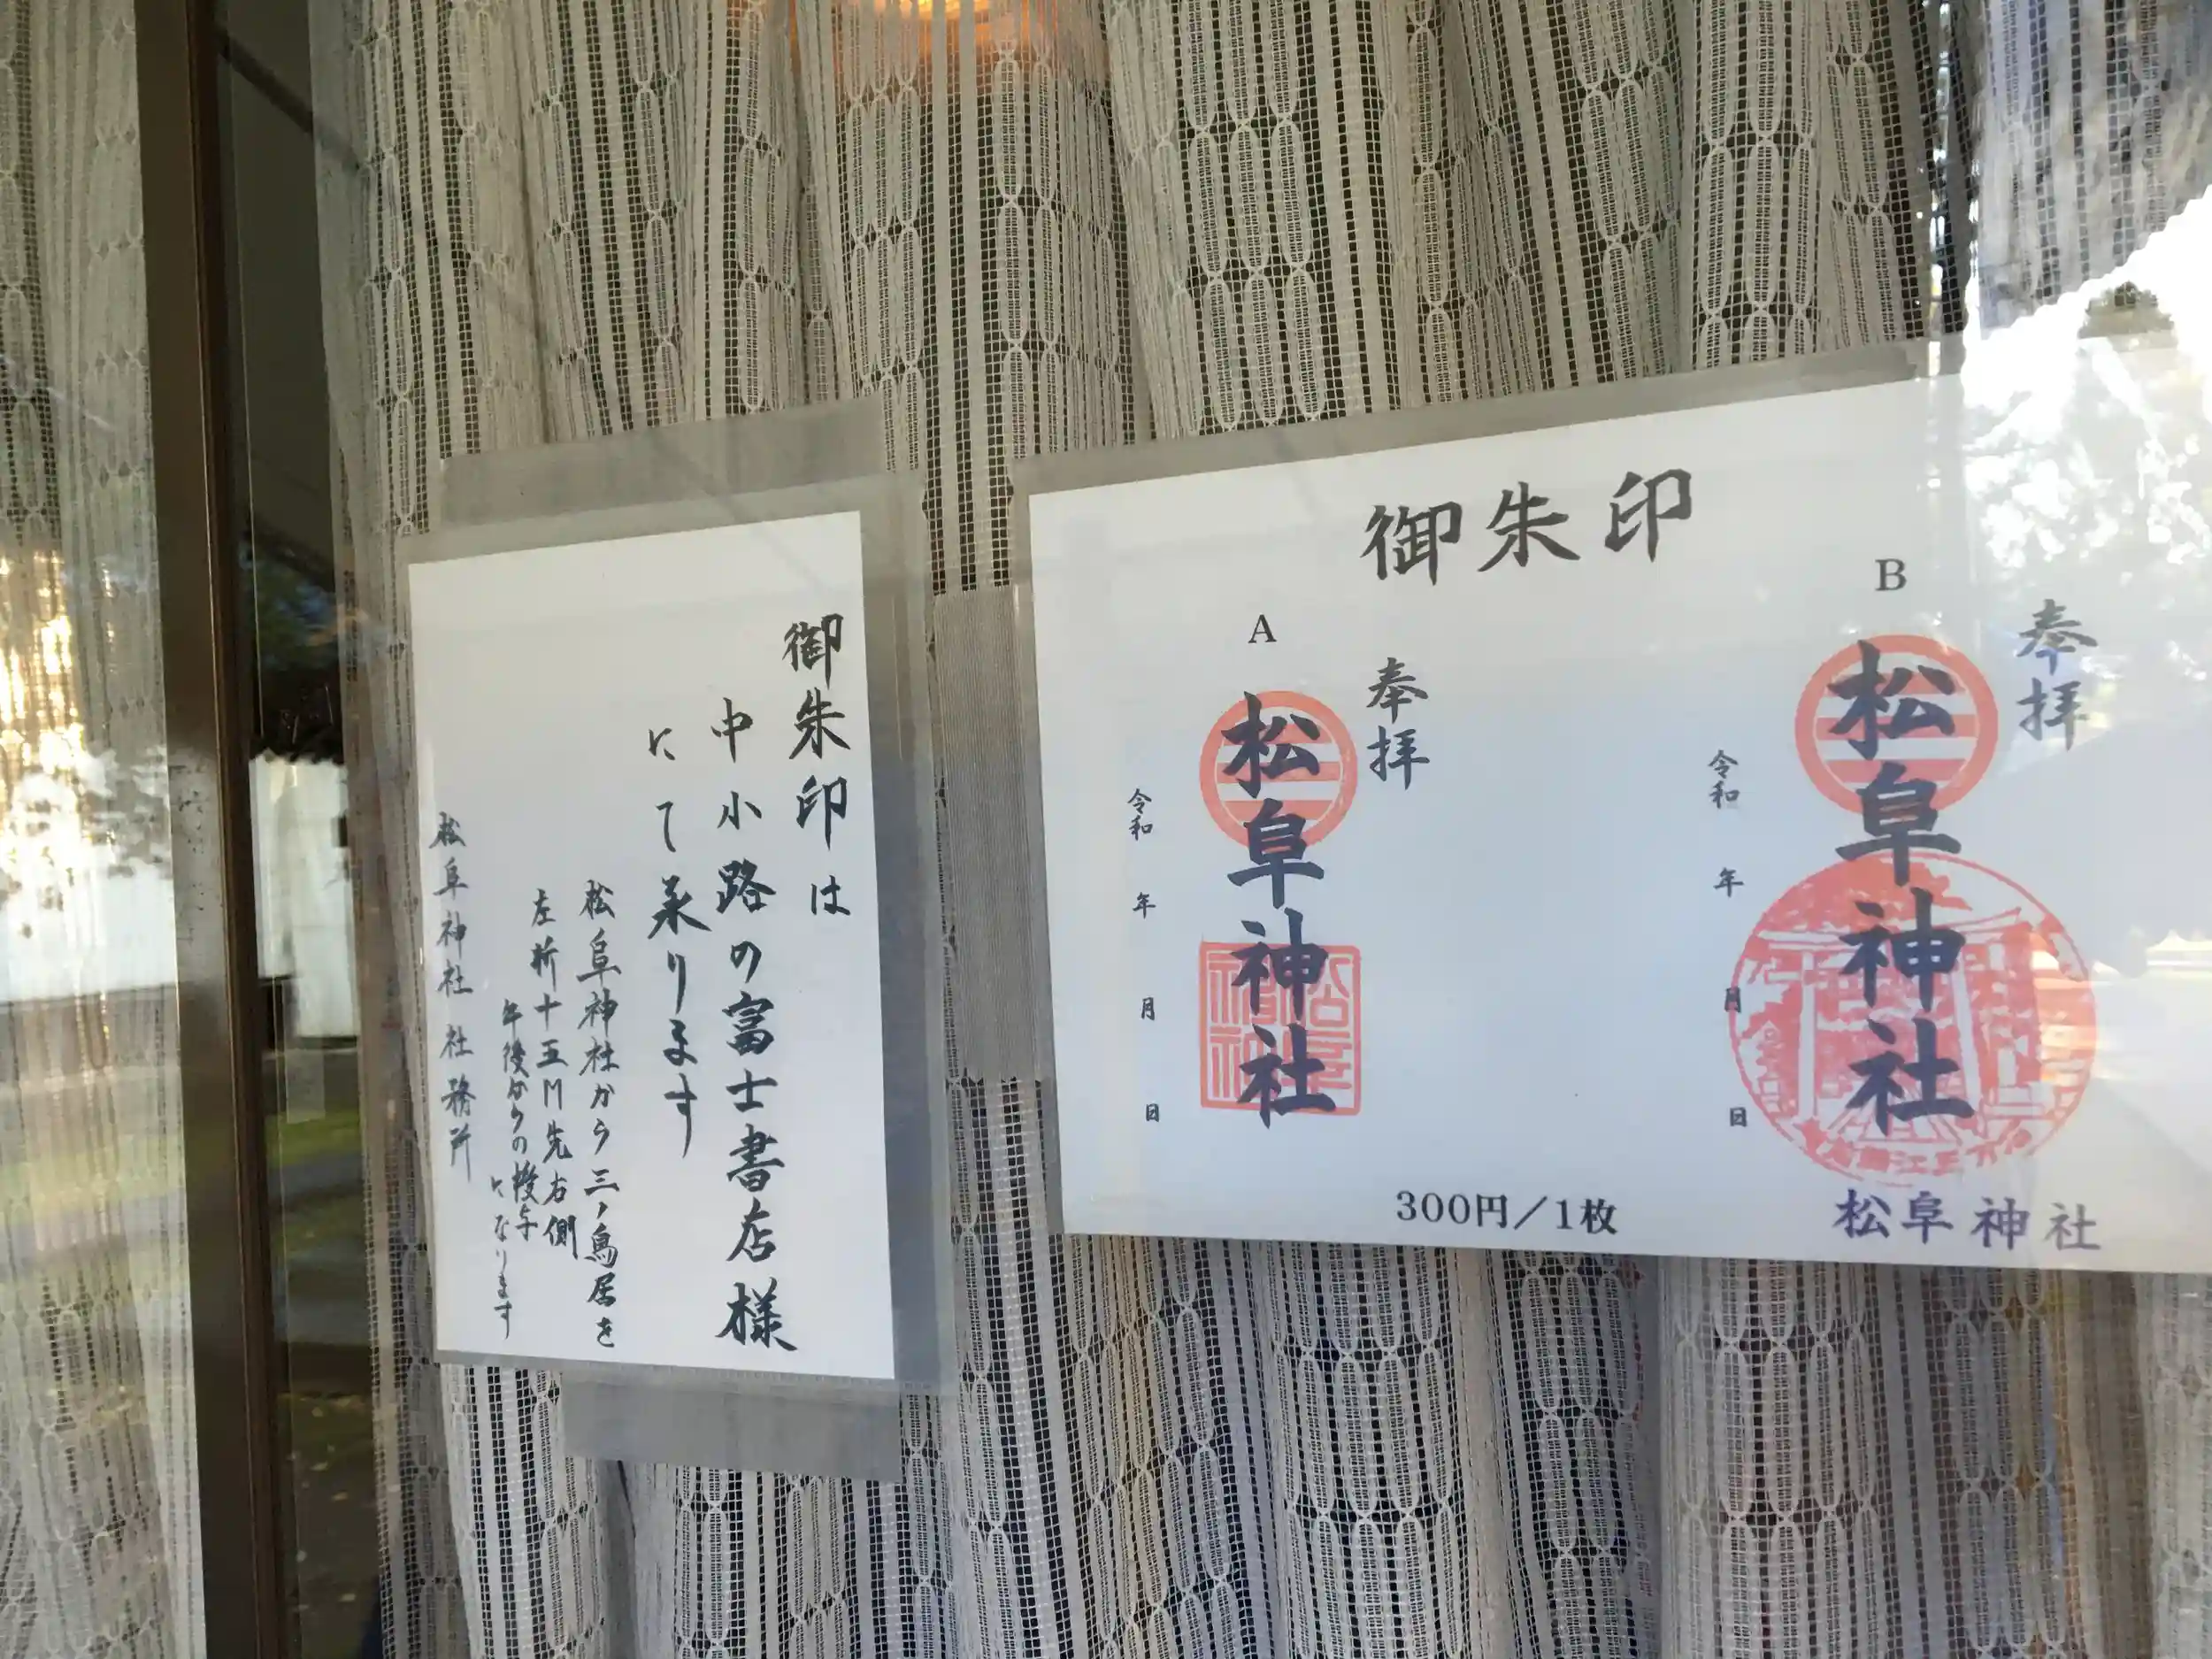 御朱印は
中小路の富士書店様
にて承ります
松阜神社から三ノ鳥居を
左折十五M先右側
午後からの授与
になります
松阜神社 社務所
御朱印
A
奉拝
松阜神社
令和 年 月 日
B
奉拝
松阜神社
令和 年 月 日
300円/1枚
松阜神社